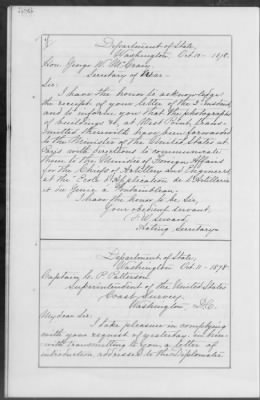 Department of State,
Washington, Oct. 10 - 1878.
Hon. George W. McCrary
Secretary of War -
Sir:
I have the honor to acknowledge
the receipt of your letter of the 8th instant,
and to inform you that the photographs
of buildings &c at West Point, trans-
mitted therewith have been forwarded
to the Minister of the United States at
Paris with directions to communicate
them to the Minister of Foreign Affairs
for the Chiefs of Artillery and Engineers
at the "École d'Application de l'Artillerie
et du Génie, à Fontainebleau.
I have the honor to be, Sir,
Your obedient servant,
F. W. Seward,
Acting Secretary
Department of State,
Washington Oct. 11 - 1878
Captain C. P. Patterson,
Superintendent of the United States
Coast Survey,
Washington, D.C.
My dear Sir:
I take pleasure in complying
with your request of yesterday,
with transmitting to you, a letter of
introduction addressed to the Diplomatic